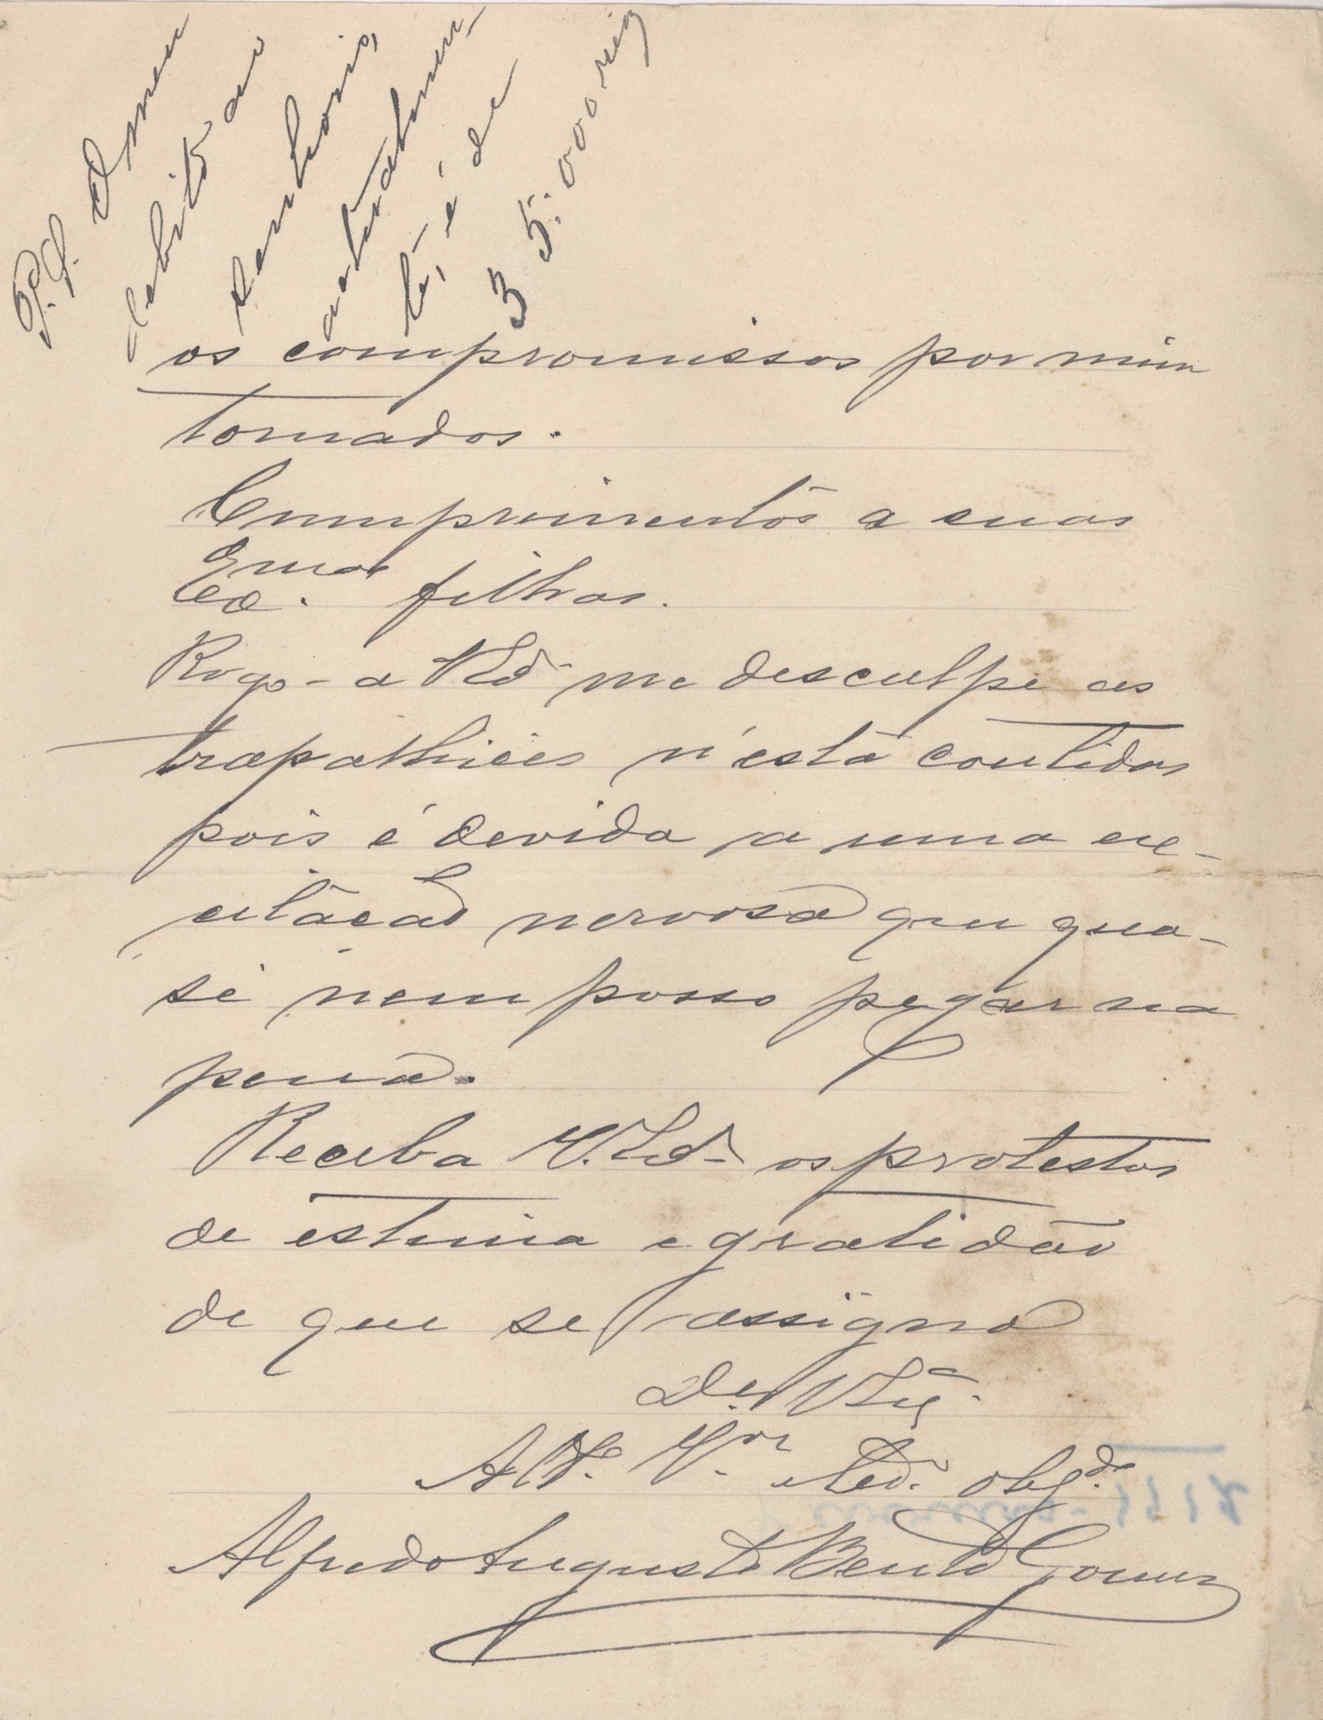 P.S. O meu
debito ao
senhorio,
actualmen-
te, é de
35:000 reis
os compromissos por mim
tomados.
Cumprimentos a suas
Exmas filhas.
Rogo-a V Ex.ª me desculpe as
trapalhices n'esta contidas
pois é devida a uma ex-
citação nervosa que qua-
si nem posso pegar na
pena.
Receba V. Ex.ª os protestos
de estima e gratidão
de que se assigna
De V Ex.ª
At.º V.or obg.do
Alfredo Augusto Bento Gomes